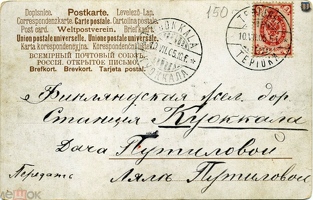 Dopisnice. Postkarte. Levelező-Lap.
Correspondenzkarte. Carte postale. Cartolina postale.
Post card. Weltpostverein. Briefkort.
Union postale universelle. Unione postale universale.
Karta korespondencyjna. Korespondenční lístek.
ВСЕМІРНЫЙ ПОЧТОВЫЙ СОЮЗЪ.
РОССІЯ. ОТКРЫТОЕ ПИСЬМО.
Brefkort. Brevkort. Tarjeta postal.
KUOKKALA
КУОККАЛА
150
10.VII
ТЕРІОКИ
Финляндская жел. дор.
Станция Куоккала
Дача Путиловой
Передать Ляля Путиловой